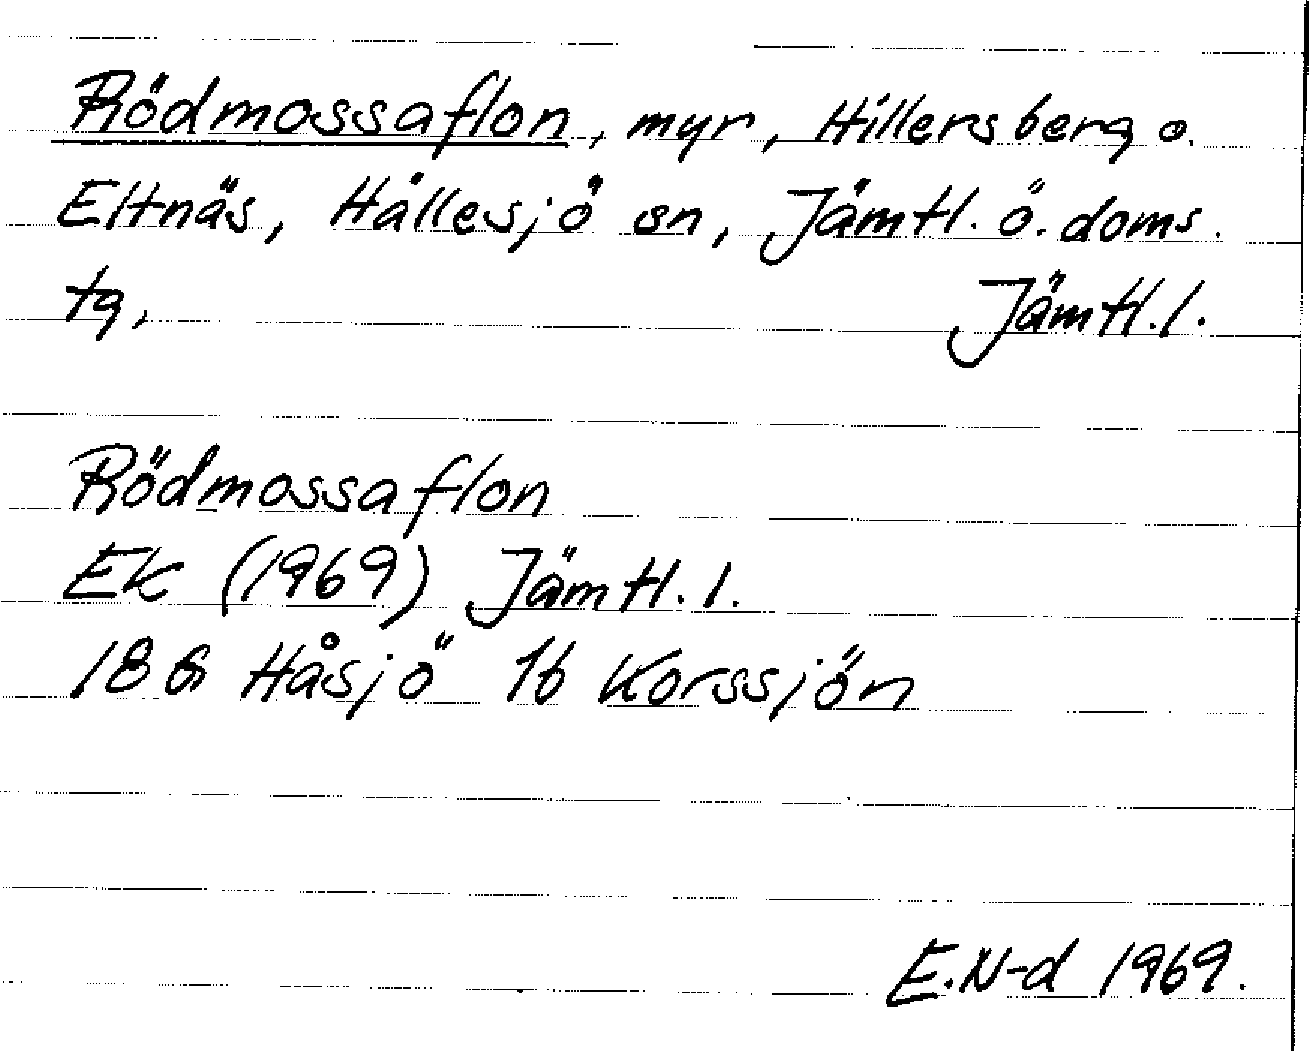 Rödmossaflon, myr, Hillersberg o.
Eltnäs, Hällesjö sn, Jämtl. ö. doms.
tg, Jämtl. l.
Rödmossaflon
Ek (1969) Jämtl. l.
18 G Håsjö 1b Korssjön
E.N-d 1969.